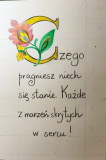 Czego
pragniesz niech
się stanie. Każde
z marzeń skrytych
w sercu!